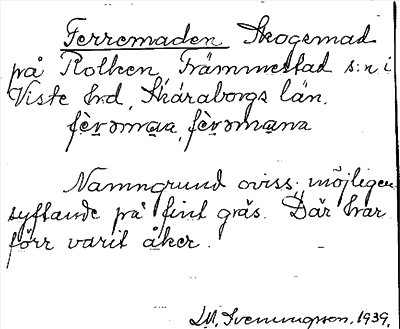 Ferremaden Skogsmad
på Rolken, Främmestad s:n i
Viste hd, Skaraborgs län.
fèrəmaa, fèrəmana
Namngrund oviss; möjligen
syftande på fint gräs. Där har
förr varit åker.
Svenungsson, 1939.